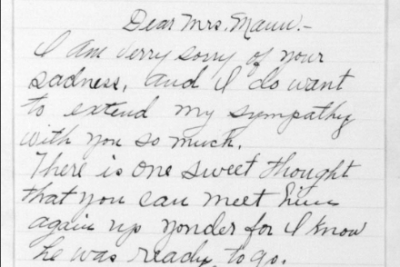 Dear Mrs. Mann.-
I am verry sorry of your
sadness, and I do want
to extend my sympathy
with you so much.
There is one sweet thought
that you can meet him
again up yonder for I know
he was ready to go.